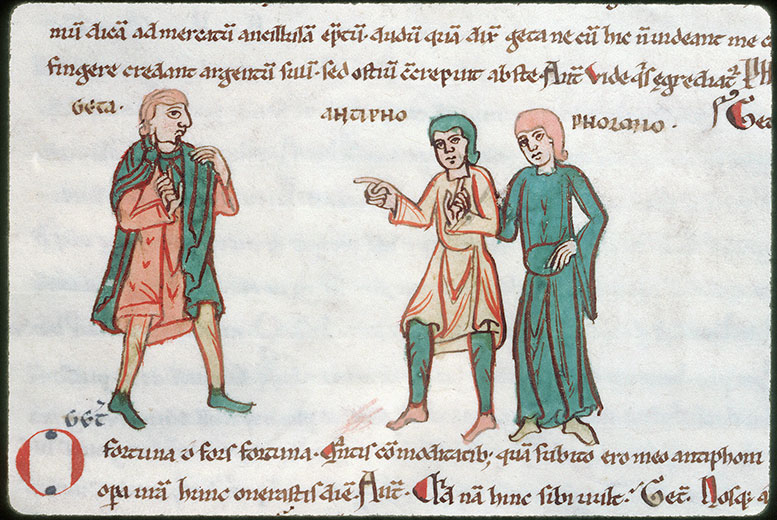 mul dicā ad mercatū ancillulā ēptū. audiū quā dix̄ geta ne cū hic n̄ uideant me c
fingere credant argentū suū. sed ostiū c̄crepuit abs te. Ant̄. Vide qs̄ egrediat᷑. Ph
GETA. ANTIPHO PHORMIO. Gea
GET̄
O fortuna o fors fortuna. q̄ntis cōmoditatib; quā subito ero meo antiphoni
ope urām hunc onerastis diē. Ant̄. Qd nā hinc sibi uult. Get̄. Nosq; a